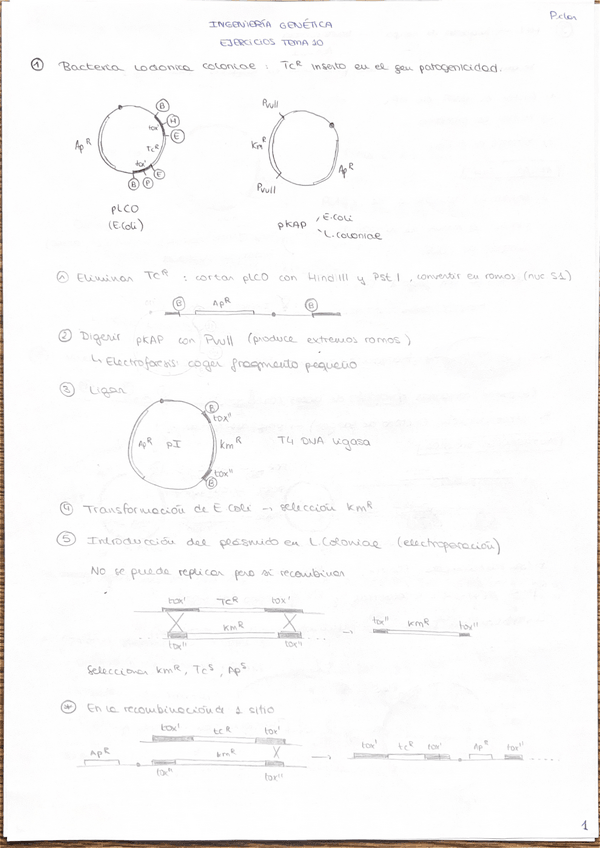 P.clon
INGENIERÍA GENÉTICA
EJERCICIOS TEMA 10
① Bacteria Iodonica coloniae : TcR inserto en el gen patogenicidad.
B
tox'
H
E
TcR
tox'
E
P
B
ApR
pLCO
(E.Coli)
PvuII
KmR
PvuII
ApR
pKAP
E.Coli
L.Coloniae
① Eliminar TcR : cortar pLCO con Hind III y Pst I , convertir en romos (nuc S1)
B ApR B
② Digerir pKAP con PvuII (produce extremos romos)
↳ Electroforesis: coger fragmento pequeño
③ Ligar
B
tox''
ApR pI KmR T4 DNA ligasa
tox''
B
④ Transformación de E Coli → selección KmR
⑤ Introducción del plásmido en L.Coloniae (electroporación)
No se puede replicar pero sí recombinar
tox' TcR tox'
KmR
tox'' tox''
tox'' KmR tox''
Seleccionar KmR, TcS, ApS
* En la recombinación de 1 sitio
tox' tcR tox'
ApR KmR
tox'' tox''
tox' tcR tox' ApR tox''
1